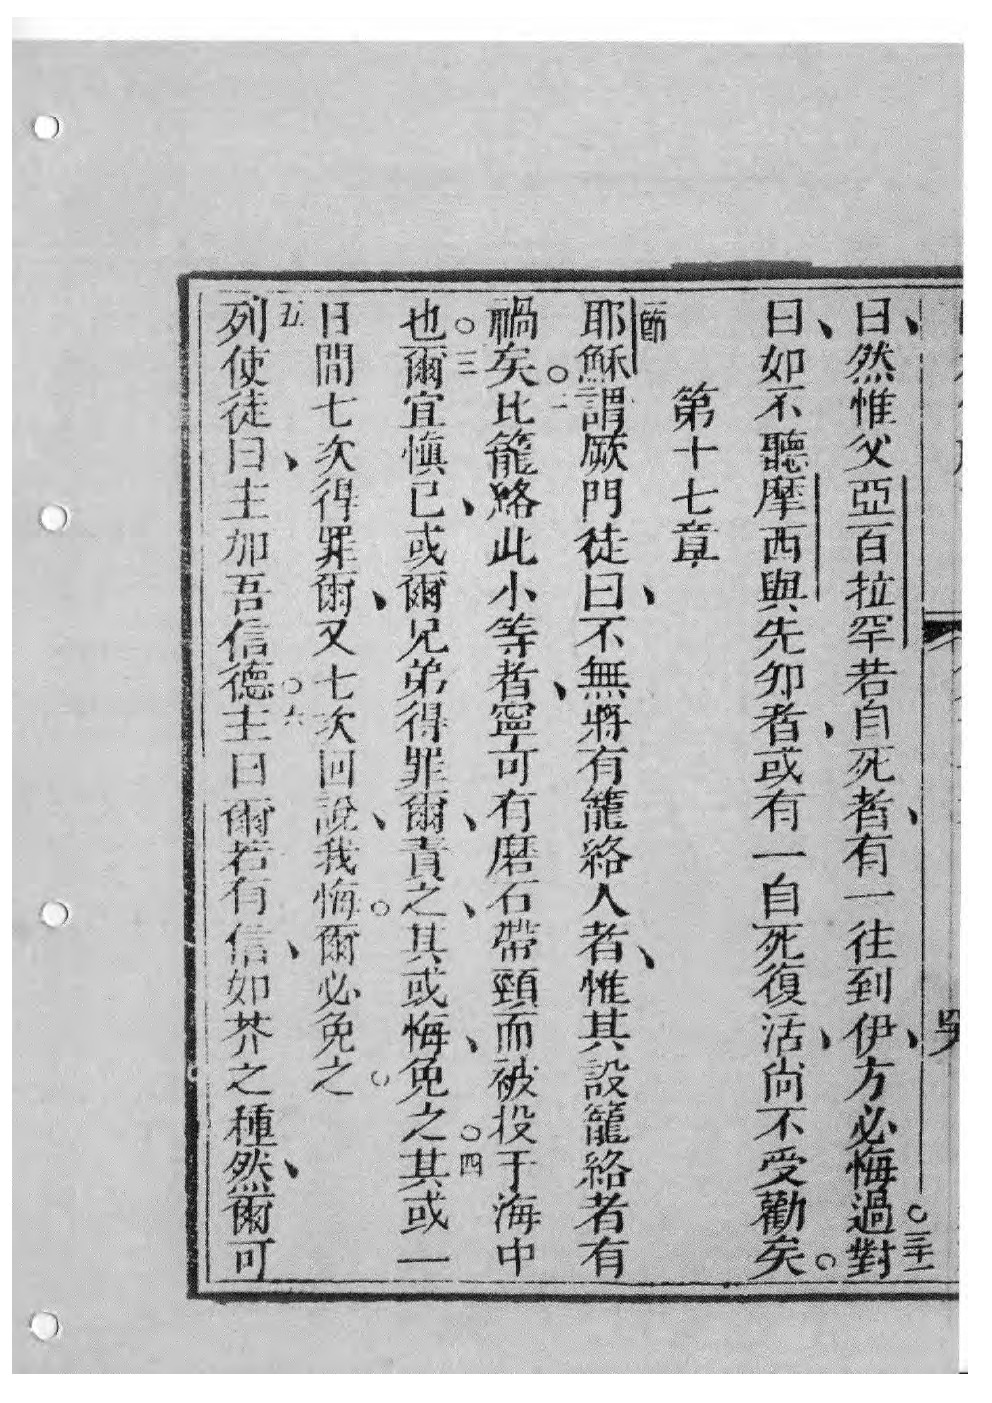 曰然惟父亞百拉罕若自死者有一往到伊方必悔過對 三十一
曰如不聽摩西與先知者或有一自死復活尚不受勸矣
第十七章
節 耶穌謂厥門徒曰不無將有籠絡人者惟其設籠絡者有
禍矣 二 比籠絡此小等者寧可有磨石帶頸而被投于海中
也 三 爾宜慎已或爾兄弟得罪爾責之其或悔免之 四 其或一
日間七次得罪爾又七次回說我悔爾必免之
五 列使徒曰主加吾信德 六 主曰爾若有信如芥之種然爾可